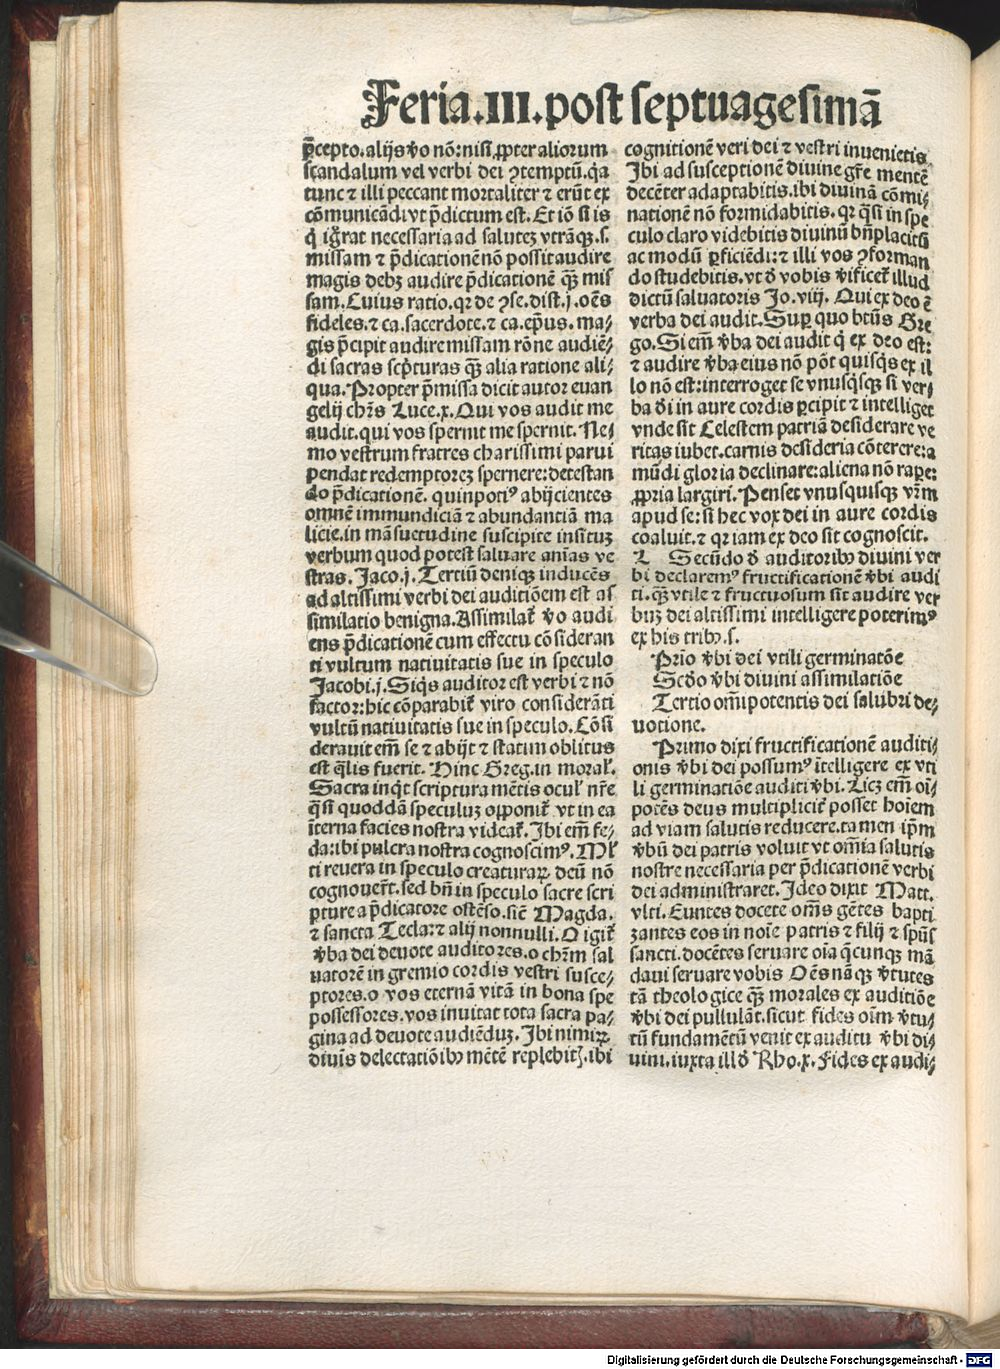 Feria.III.post septuagesimā
p̄cepto.alijs v̄o nō:nisi ꝓpter aliorum
scandalum vel verbi dei ꝯtemptū.q̄a
tunc ⁊ illi peccant mortaliter ⁊ erūt ex
cōmunicādi.vt p̄dictum est. Et iō si is
q̇ iḡrat necessaria ad salutez vtrāqꝫ.s.
missam ⁊ p̄dicationē nō possit audire
magis debꝫ audire p̄dicationē qꝫ̄ mis
sam.Cuius ratio.qr de ꝯse.dist.j.oēs
fideles.⁊ ca.sacerdote.⁊ ca.ep̄us.ma⸗
gis p̄cipit audire missam rōne audiē⸗
di sacras scp̄turas qꝫ̄ alia ratione ali⸗
qua.Propter p̄missa dicit autor euan
gelij chr̄s Luce.x.Qui vos audit me
audit.qui vos spernit me spernit. Ne⸗
mo vestrum fratres charissimi parui
pendat redemptoreꝫ spernere:detestan
do p̄dicationē. quinpotiꝰ abijcientes
omnē immundiciā ⁊ abundantiā ma
licie.in māsuetudine suscipite insituꝫ
verbum quod potest saluare aīas ve
stras. Jaco.j. Tertiū deniqꝫ inducēs
ad altissimi verbi dei auditiōem est as
similatio benigna.Assimilat̄ v̄o audi
ens p̄dicationē cum effectu cōsideran
ti vultum natiuitatis sue in speculo
Jacobi.j.Siq̄s auditor est verbi ⁊ nō
factor:hic cōparabit̄ viro considerāti
vultū natiuitatis sue in speculo. Cōsi
derauit em̄ se ⁊ abijt ⁊ statim oblitus
est q̄lis fuerit. Hinc Greg.in moral̄.
Sacra inq̄t scriptura mētis ocul̄ nr̄e
q̄si quoddā speculuꝫ opponit̄ vt in ea
īterna facies nostra videat̄.Ibi em̄ fe⸗
da:ibi pulcra nostra cognoscimꝰ.Ml̄
ti reuera in speculo creaturaꝝ deū nō
cognouer̄t.sed bn̄ in speculo sacre scri
pture a p̄dicatore ostēso.sic̄ Magda.
⁊ sancta Tecla:⁊ alij nonnulli.O igit̄
v̄ba dei deuote auditores.o chr̄m sal
uatorē in gremio cordis vestri susce⸗
ptores.o vos eternā vitā in bona spe
possessores.vos inuitat tota sacra pa⸗
gina ad deuote audiēduꝫ. Ibi nimiꝝ
diuis delectatiōibꝰ mētē replebitꝭ.ibi
cognitionē veri dei ⁊ vestri inuenietis
Ibi ad susceptionē diuine gr̄e mentē
decēter adaptabitis.ibi diuinā cōmi⸗
nationē nō formidabitis.qr q̄si in spe
culo claro videbitis diuinū bn̄placitū
ac modū ꝑficiēdi:⁊ illi vos ꝯforman
do studebitis.vt d̄ vobis v̄ificet̄ illud
dictū saluatoris Jo.viij. Qui ex deo ē
verba dei audit.Suꝑ quo bt̄us Gre
go.Si em̄ v̄ba dei audit q̇ ex deo est:
⁊ audire v̄ba eius nō pōt quisq̄s ex il
lo nō est:interroget se vnusq̄sqꝫ si ver⸗
ba d̄i in aure cordis ꝑcipit ⁊ intelliget
vnde sit Celestem patriā desiderare ve
ritas iubet.carnis desideria cōterere:a
mūdi gloria declinare:aliena nō raꝑe:
ꝓpria largiri.Penset vnusquisqꝫ vr̄m
apud se:si hec vox dei in aure cordis
coaluit.⁊ qr iam ex deo sit cognoscit.
L Secūdo d̄ auditoribꝰ diuini ver
bi declaremꝰ fructificationē v̄bi audi
ti.qꝫ̄ vtile ⁊ fructuosum sit audire ver
buꝫ dei altissimi intelligere poterimꝰ
ex his tribꝰ.s.
Prīo v̄bi dei vtili germinatōe
Scd̄o v̄bi diuini assimilatiōe
Tertio om̄ipotentis dei salubri de⸗
uotione.
Primo dixi fructificationē auditi⸗
onis v̄bi dei possumꝰ ītelligere ex vti
li germinatiōe auditi v̄bi. Licꝫ em̄ oī⸗
potēs deus multiplicit̄ posset hoīem
ad viam salutis reducere.tamen ip̄m
v̄bū dei patris voluit vt om̄ia salutis
nostre necessaria per p̄dicationē verbi
dei administraret. Ideo dixit Matt.
vlti. Euntes docete om̄s gētes bapti
zantes eos in noīe patris ⁊ filij ⁊ sp̄ūs
sancti.docētes seruare oīa q̄cunqꝫ mā
daui seruare vobis Oēs nāqꝫ v̄tutes
tā theologice qꝫ̄ morales ex auditiōe
v̄bi dei pullulāt.sicut fides oīm v̄tu⸗
tū fundamētū venit ex auditu v̄bi di⸗
uini.iuxta illd̄ Rho.x. Fides ex audi⸗
Digitalisierung gefördert durch die Deutsche Forschungsgemeinschaft - DFG